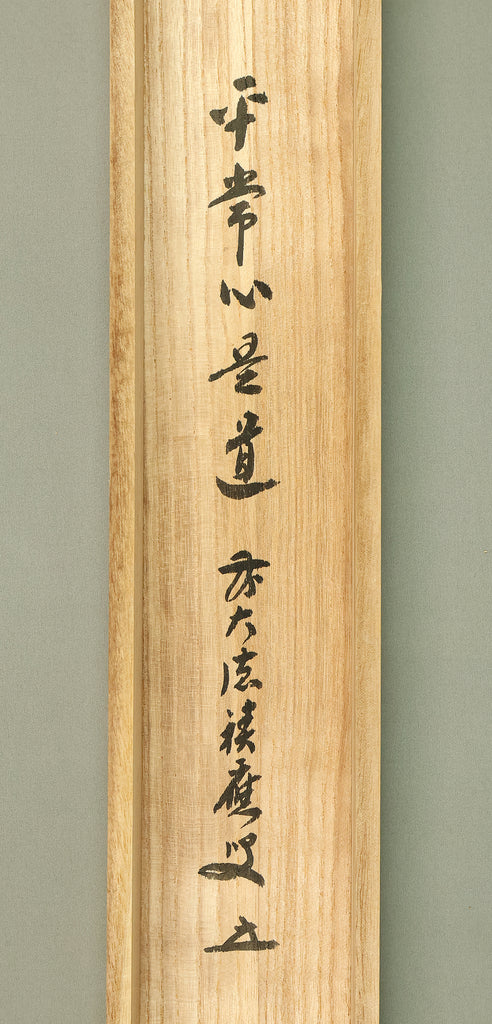 平常心是道 前大徳積應叟